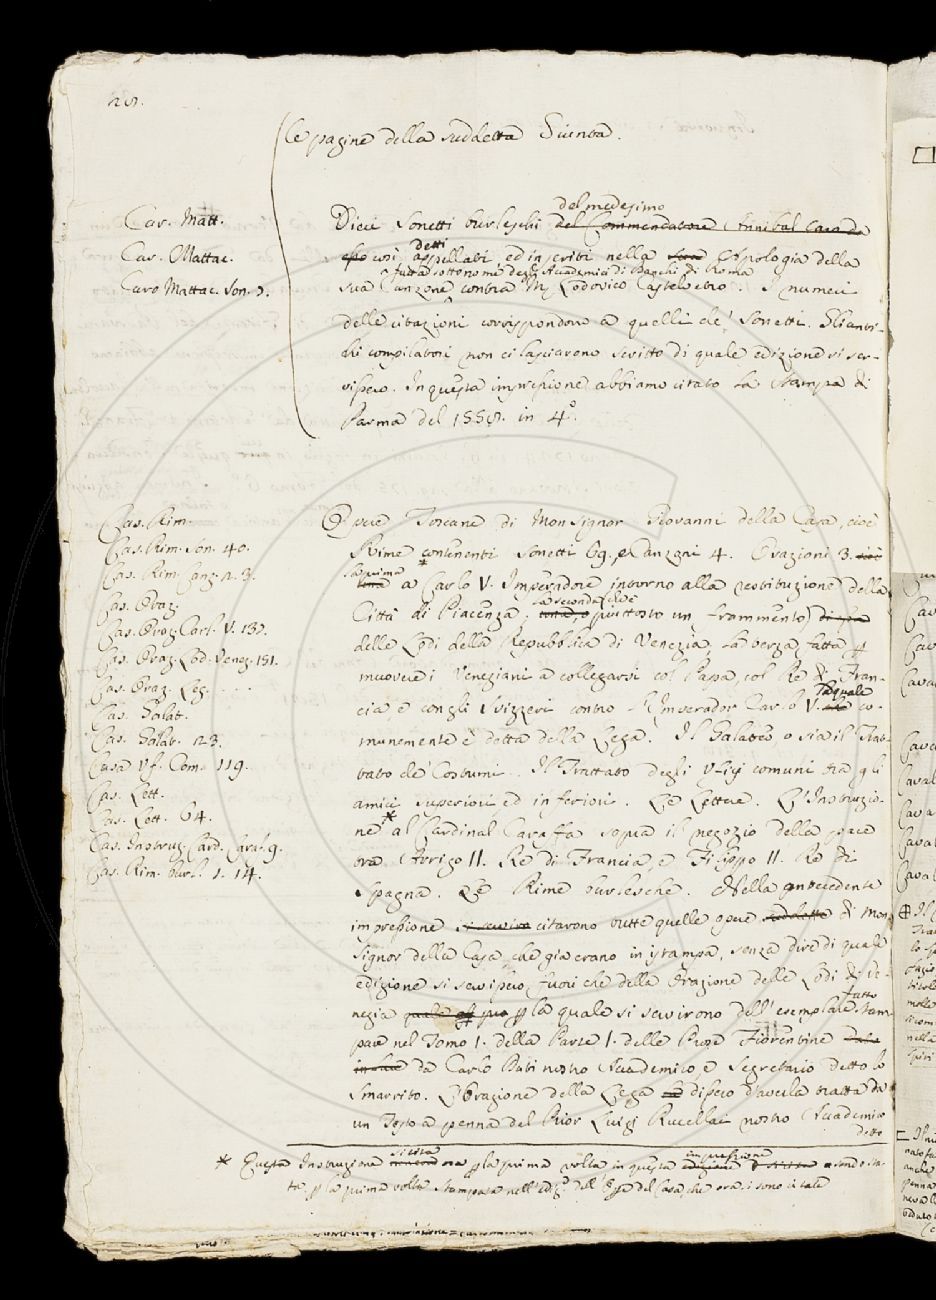 le pagine della suddetta Giunta.
Car. Matt.
Car. Mattac.
Caro Mattac. Son. 2.
del medesimo
Dieci Sonetti burleschi del Commendatore Annibal Caro da
detti
esso così appellati ed inseriti nella sua Apologia della
fatta sotto nome degli Accademici di Banchi di Roma
sua Canzone contra M. Lodovico Castelvetro. I numeri
delle citazioni corrispondono a quelli de' Sonetti. Gli anti-
chi compilatori non ci lasciarono scritto di quale edizione si ser-
vissero. In questa impressione abbiamo citato la stampa di
Parma del 1558. in 4°.
Cas. Rim.
Cas. Rim. Son. 40.
Cas. Rim. Canz. 2. 3.
Cas. Oraz.
Cas. Oraz. Carl. V. 132.
Cas. Oraz. Lod. Venez. 151.
Cas. Oraz. Leg. . . .
Cas. Galat.
Cas. Galat. 23.
Casa Uf. Com. 119.
Cas. Lett.
Cas. Lett. 64.
Cas. Instruz. Card. Caraf. 9.
Cas. Rim. burl. 1. 14.
Opere Toscane di Monsignor Giovanni della Casa, cioè
Rime contenenti Sonetti 69. e Canzoni 4. Orazioni 3. cioè
la prima *
una a Carlo V. Imperadore intorno alla restituzione della
la seconda
Città di Piacenza, o piuttosto un frammento
delle Lodi della Repubblica di Venezia, la terza fatta p
muovere i Veneziani a collegarsi col Papa, col Re di Fran-
la quale
cia e con gli Svizzeri contro l'Imperador Carlo V. che co-
munemente è detta della Lega. Il Galateo o sia il Trat-
tato de' Costumi. Il Trattato degli Ufizj comuni tra gli
amici superiori ed inferiori. Le Lettere. L'Instruzio-
*
ne al Cardinal Caraffa sopra il negozio della pace
tra Arrigo II. Re di Francia, e Filippo II. Re di
Spagna. Le Rime burlesche. Nella antecedente
impressione si servirono citarono tutte quelle opere suddette di Mon-
signor della Casa, che già erano in istampa, senza dire di quale
edizione si servissero, fuori che della Orazione delle Lodi di Ve-
fatto
nezia quale p la quale si servirono dell'esemplare stam-
pare nel Tomo I. della Parte I. delle Prose Fiorentine
da Carlo Dati nostro Accademico, e Segretario detto lo
Smarrito. L'Orazione della Lega dissero d'averla tratta da
un Testo a penna del Prior Luigi Rucellai nostro Accademico
detto
si cita
* Questa Instruzione ora p la prima volta in questa
impressione
essendo sta-
ta p la prima volta stampata nell'ediz. dell' del Casa, che ora si sono citate